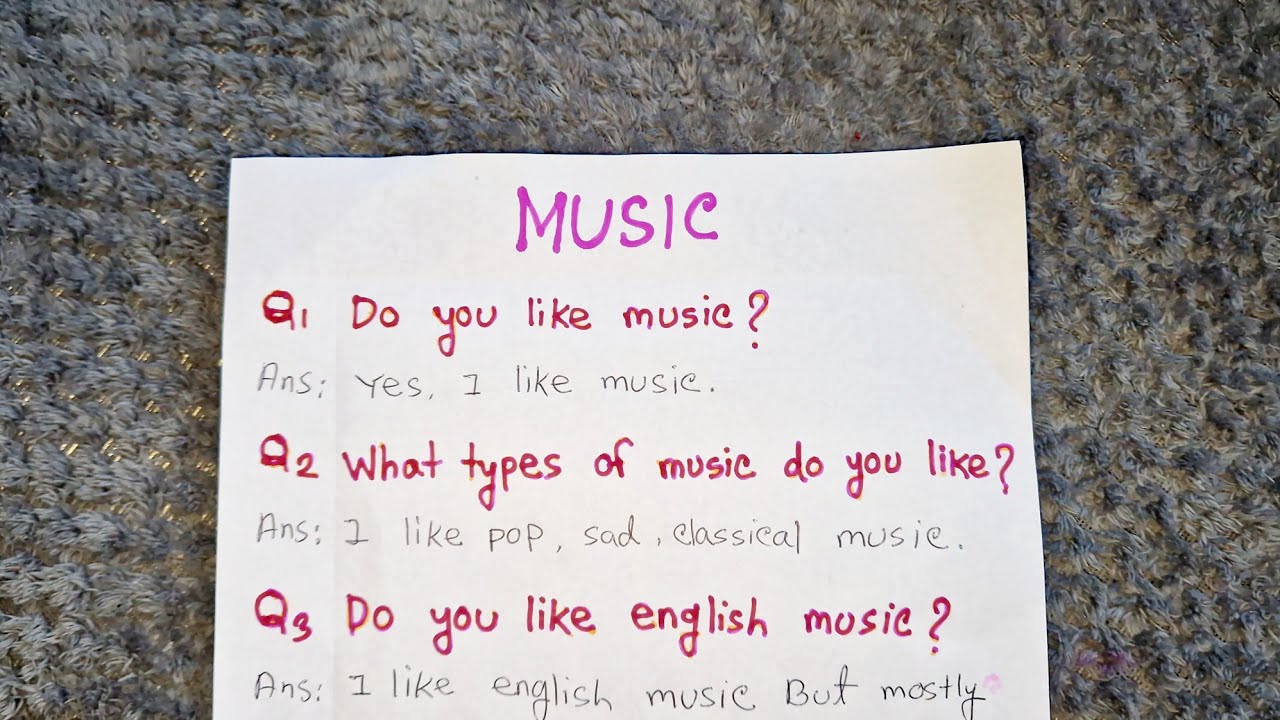 MUSIC
Q1 Do you like music?
Ans: Yes, I like music.
Q2 What types of music do you like?
Ans: I like pop, sad, classical music.
Q3 Do you like english music?
Ans: I like english music But mostly